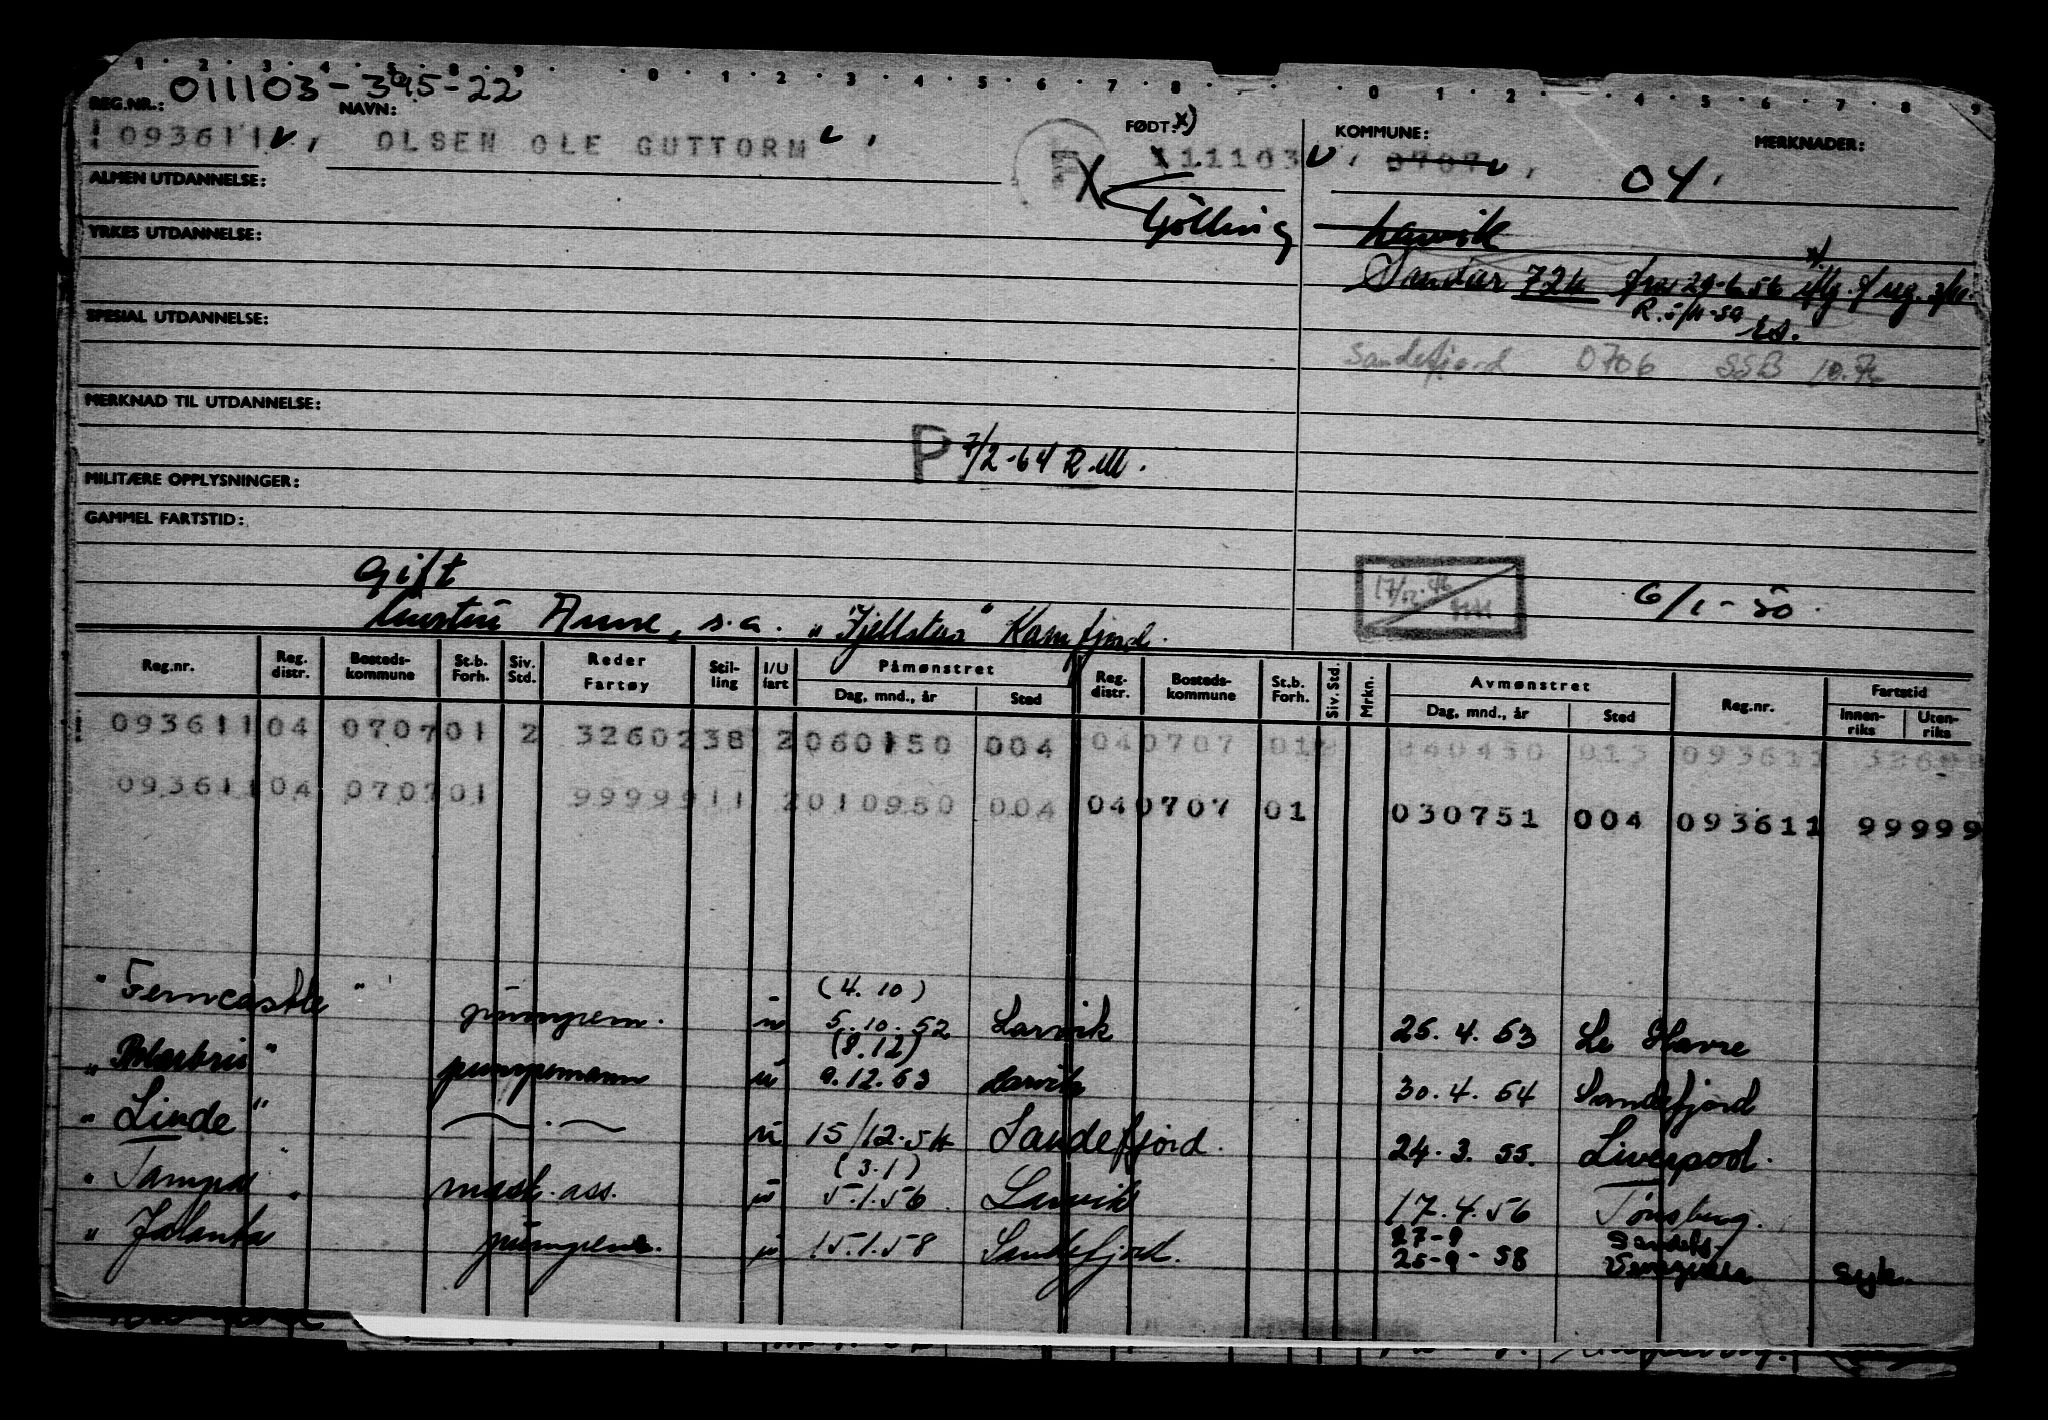 1 2 3 4 5 8 9 0 1 2 3 4 5 6 7 8 0 1 2 4 5 6 7 8 9
011103-395-22
REG.NR.: NAVN: FØDT: x) KOMMUNE: MERKNADER:
! 093611 OLSEN OLE GUTTORM F 111103 0707 04
ALMEN UTDANNELSE:
X Tjølling Larvik
YRKES UTDANNELSE:
Sandar 72 fra 29-6-56
SPESIAL UTDANNELSE:
Sandefjord 0706 SSB
MERKNAD TIL UTDANNELSE:
P 7/2-64 R.M.
MILITÆRE OPPLYSNINGER:
GAMMEL FARTSTID:
Gift
Anne, s.a. Kamfjord.
6/1-50
Reg.nr. Reg. distr. Bosteds-kommune St.b. Forh. Siv. Std. Reder Fartøy Stil-ling I/U fart Påmønstret Dag, mnd., år Sted Reg. distr. Bosteds-kommune St.b. Forh. Siv. Std. Mrkn. Avmønstret Dag, mnd., år Sted Reg.nr. Fartstid Innen-riks Uten-riks
! 093611 04 0707 01 2 32602 38 2 060150 004 04 0707 01 093611
093611 04 0707 01 99999 11 2 010950 004 04 0707 01 030751 004 093611 99999
"Ferncastle" pumpem. u (4.10)
5.10.52 Larvik 25.4.53 Le Havre
"Polarbris" pumpemann u (8.12)
9.12.53 Larvik 30.4.54 Sandefjord
"Linde" — . — u 15/12.54 Sandefjord. 24.3.55. Liverpool.
"Tampa" mask. ass. u (3.1)
5.1.56 Larvik 17.4.56 Tønsberg.
"Jalanta pumpem. u 15.1.58 Sandefjord. 25-9-58 Venezuela syk.